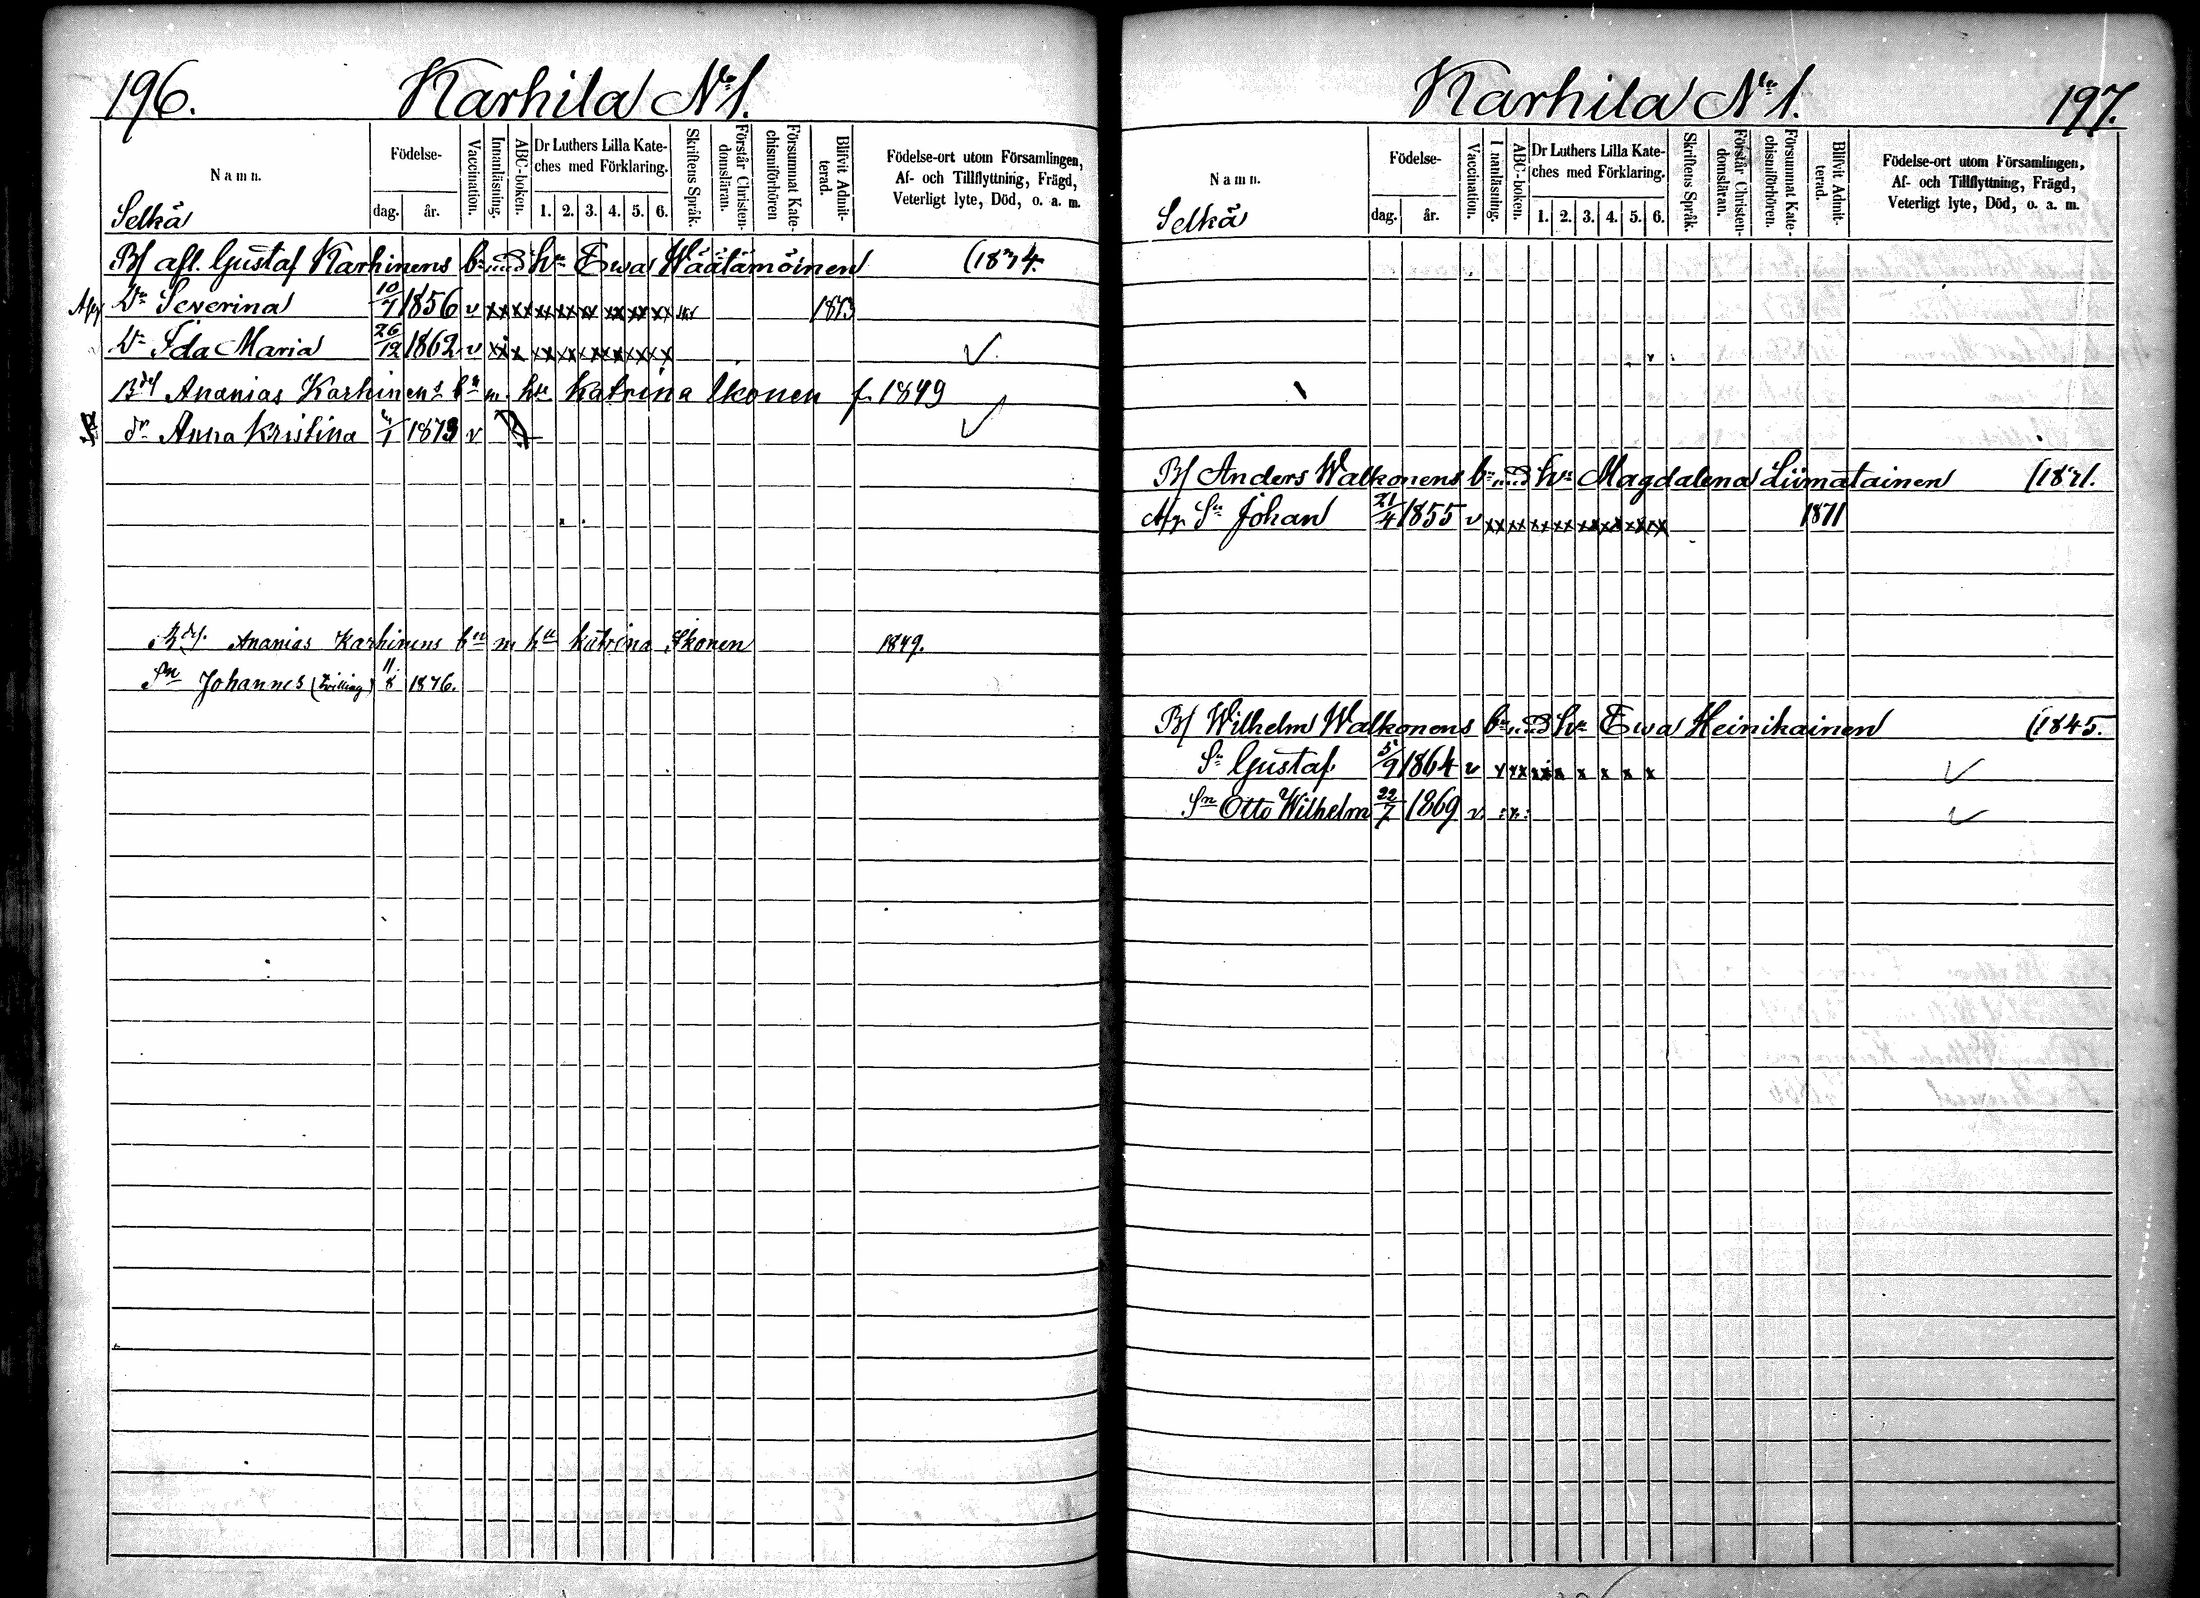 196. Karhila No 1.
Namn.
Födelse-
dag. år.
Vaccination.
Innanläsning.
ABC-boken.
Dr Luthers Lilla Kate-
ches med Förklaring.
1. 2. 3. 4. 5. 6.
Skriftens Språk.
Förstår Christen-
domsläran.
Försummat Kate-
chismiförhören
Blifvit Admit-
terad.
Födelse-ort utom Församlingen,
Af- och Tillflyttning, Frägd,
Veterligt lyte, Död, o. a. m.
Selkä
Bf afl. Gustaf Karhinens bn med hu Ewa Wäätämöinen
Dr Severina 10/7 1856 v xx xx xx xx xx xx xx xx 1873
Dr Ida Maria 26/12 1862 v xx x xx xx xx xx xx xx ✓
Ananias Karhinens bn m. hu Katrina Ikonen f. 1849
dr Anna Kristina 1873 v ✓
Ananias Karhinens bn m hu Katrina Ikonen 1849.
Sn Johannes (Tvilling) 11/8 1876.
Karhila No 1. 197.
Namn.
Födelse-
dag. år.
Vaccination.
Innanläsning.
ABC-boken.
Dr Luthers Lilla Kate-
ches med Förklaring.
1. 2. 3. 4. 5. 6.
Skriftens Språk.
Förstår Christen-
domsläran.
Försummat Kate-
chismiförhören.
Blifvit Admit-
terad.
Födelse-ort utom Församlingen,
Af- och Tillflyttning, Frägd,
Veterligt lyte, Död, o. a. m.
Selkä
Bf Anders Walkonens bn med hu Magdalena Liimatainen
Sn Johan 21/4 1855 v xx xx xx xx xx xx xx xx 1871
Bf Wilhelm Walkonens bn med hu Ewa Heinikainen (1845.
Sn Gustaf 5/9 1864 v ✓
Sn Otto Wilhelm 22/7 1869 v ✓